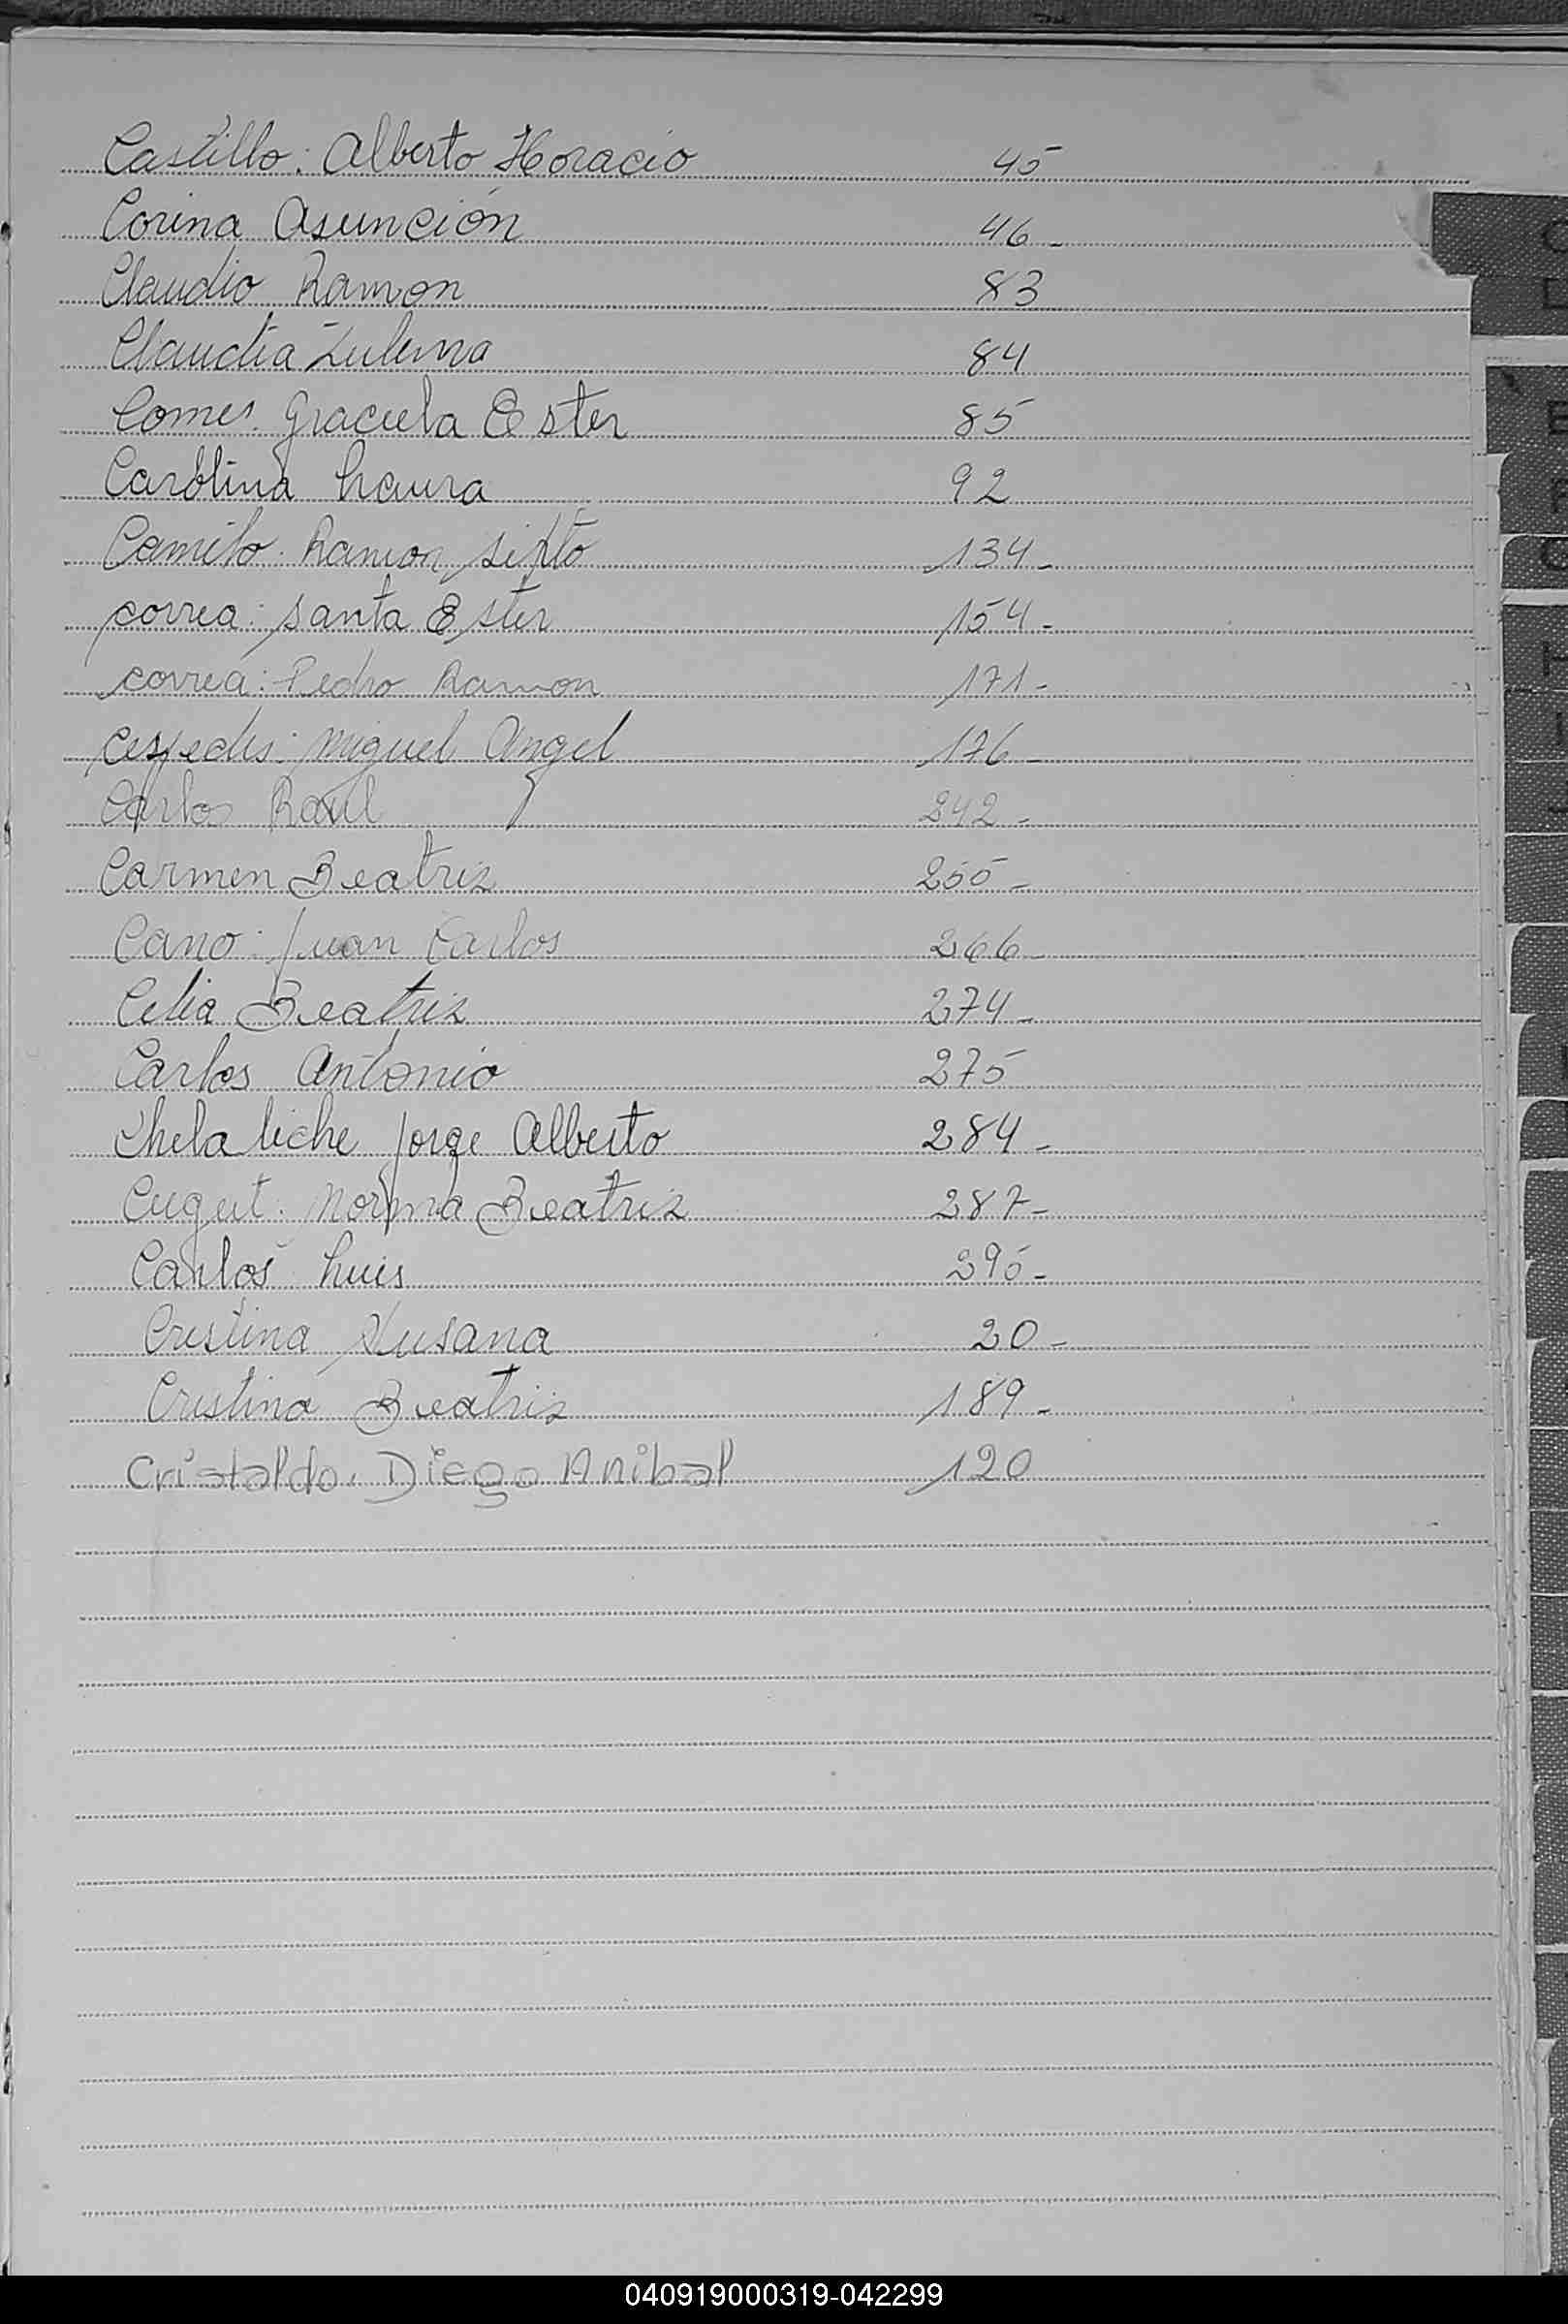 Castillo: Alberto Horacio 45
Corina Asunción 46-
Claudio Ramon 83
Claudia Zulema 84
Comes. Graciela Ester 85
Carolina Laura 92
Camilo. Ramon Sixto 134-
Correa: Santa Ester 154-
Correa: Pedro Ramon 171-
Cespedes: Miguel Angel 176-
Carlos Raúl 242-
Carmen Beatriz 255-
Cano: Juan Carlos 266-
Celia Beatriz 274-
Carlos Antonio 275
Chelaliche Jorge Alberto 284-
Cugut: Norma Beatriz 287-
Carlos Luis 295-
Cristina Susana 20-
Cristina Beatriz 189-
Cristaldo. Diego Anibal 120
040919000319-042299